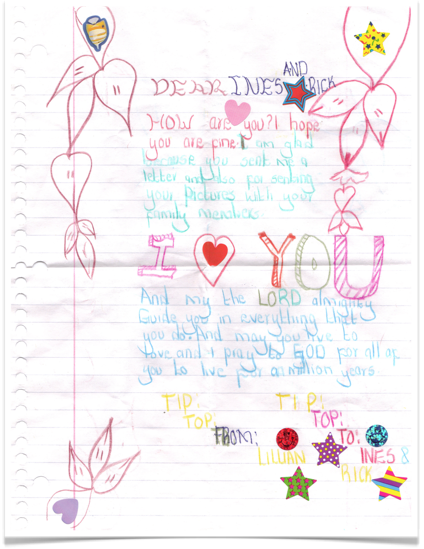 DEAR INES AND RICK
HOW are you? I hope
you are fine. I am glad
because you sent me a
letter and also for sending
your Pictures with your
family members
I YOU
And my the LORD almighty
Guide you in everything that
you do. And may you live to
love and I pray to GOD for all of
you to live for a million years
TIP. TIP!
TOP: TOP!
FROM: TO:
LILLIAN INES &
RICK